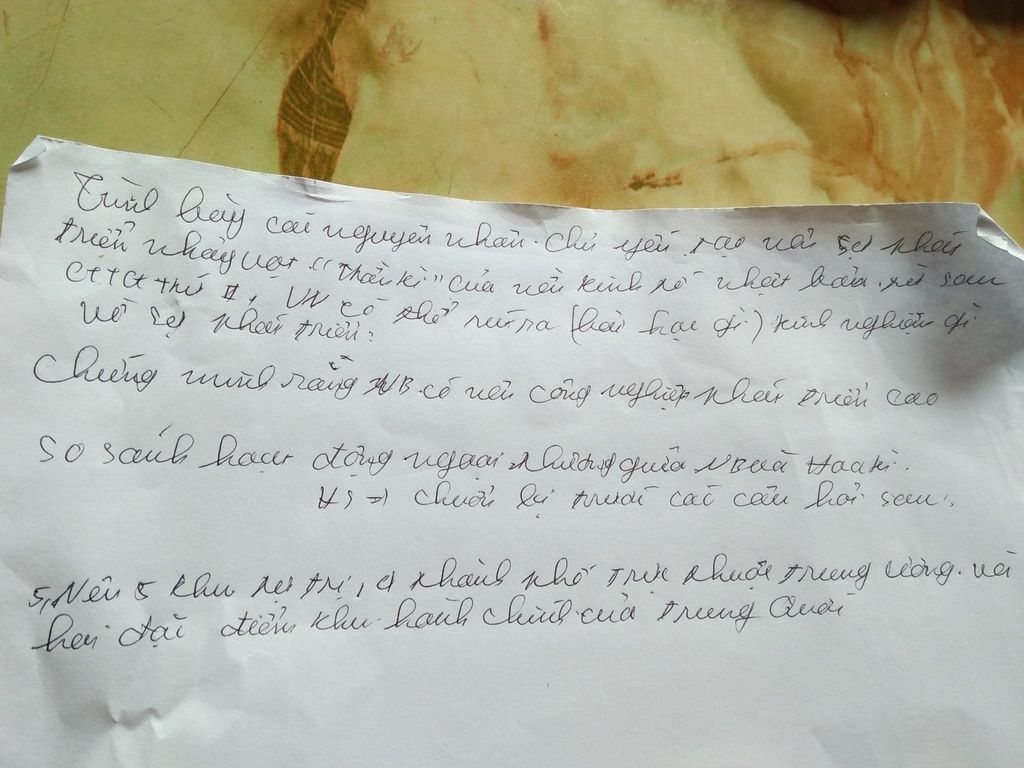 Trình bày các nguyên nhân chủ yếu tạo nên sự phát
triển nhảy vọt "thần kì" của nền kinh tế nhật bản từ sau
CTTG thứ II, VN có thể rút ra (bài học gì) kinh nghiệm gì
về sự phát triển.
Chứng minh rằng NB có nền công nghiệp phát triển cao
So sánh hoạt động ngoại thương giữa NB và Hoa kì.
HS => chuẩn bị trước các câu hỏi sau:
5, Nêu 5 khu tự trị, 4 thành phố trực thuộc trung ương và
hai đặc điểm khu hành chính của Trung Quốc